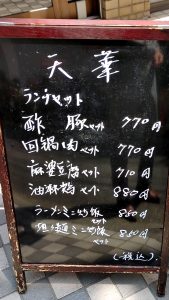 天華
ランチセット
酢豚セット 770円
回鍋肉セット 770円
麻婆豆腐セット 710円
油淋鶏セット 880円
ラーメンミニ炒飯セット 860円
ミニ炒飯セット 860円
(税込)